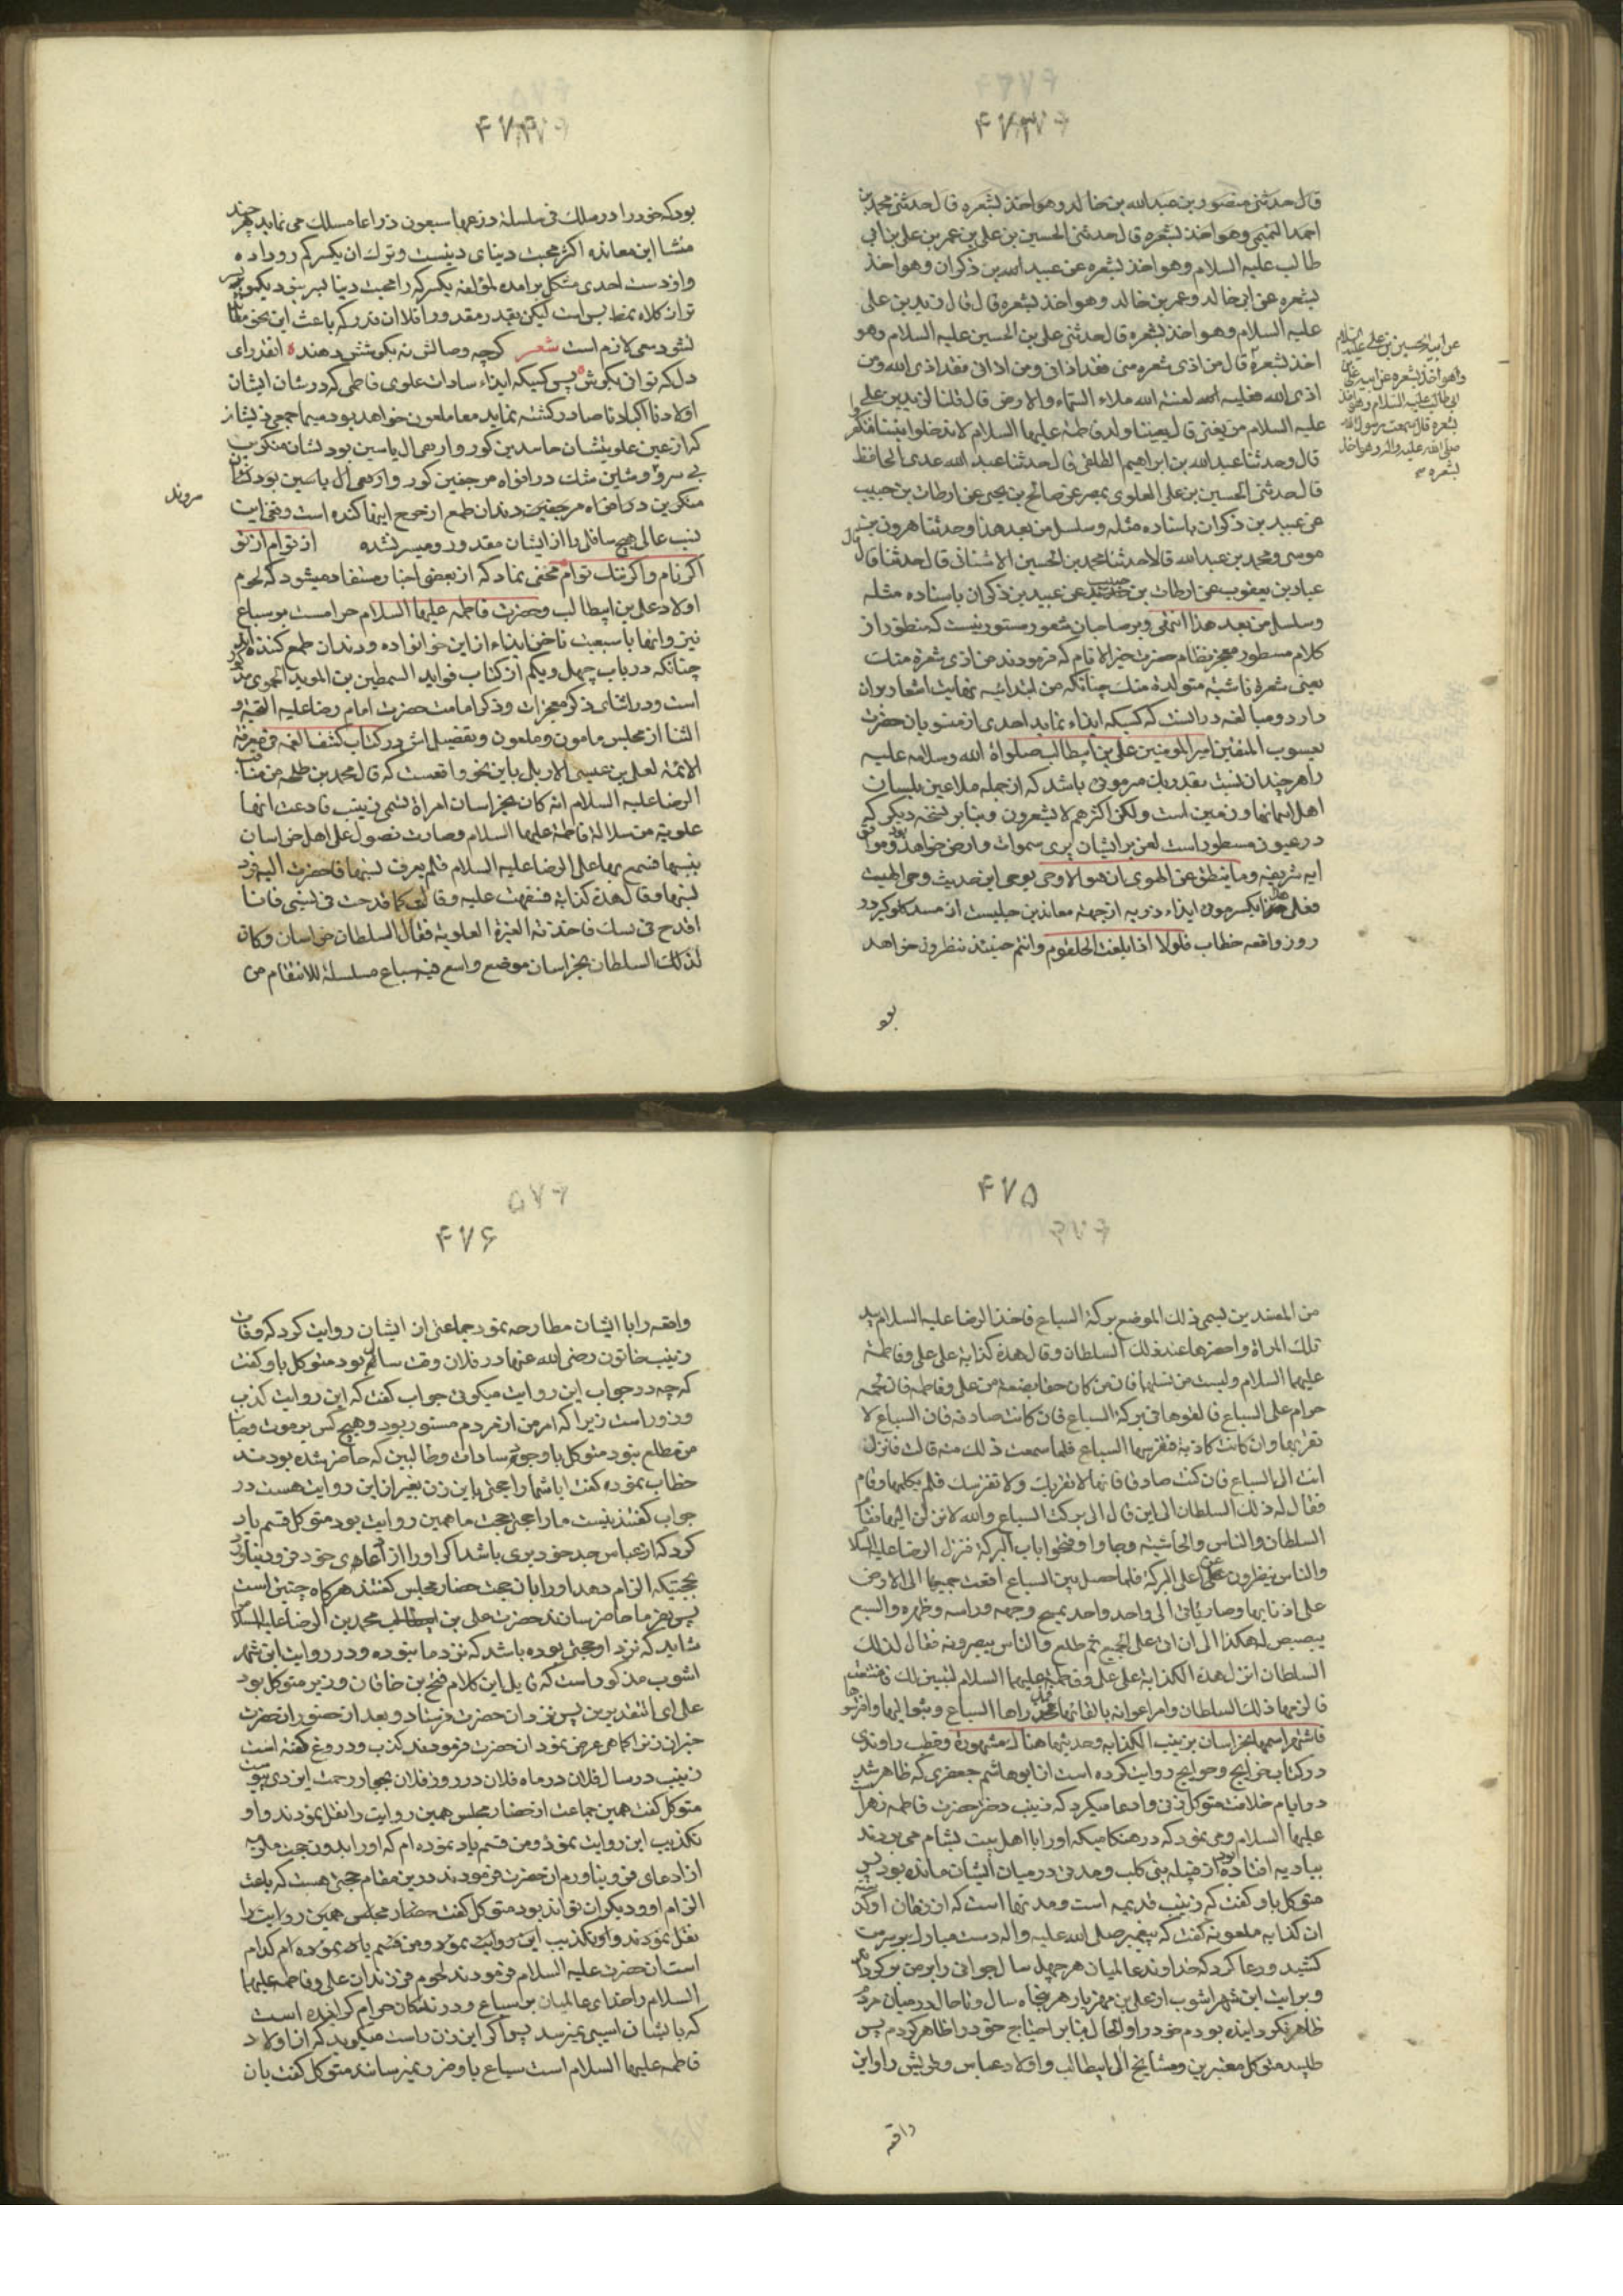 ۴۷۳
قال حدثنی منصور بن عبدالله بن خالد وهو اخذ بشعره قال حدثنی محمد بن
احمد التمیمی وهو اخذ بشعره قال حدثنی الحسین بن علی بن عمر بن علی بن ابی
طالب علیه السلام وهو اخذ بشعره عن عبید الله بن ذکوان وهو اخذ
بشعره عن ابی خالد وعمر بن خالد وهو اخذ بشعره قال قال زید بن علی
علیه السلام وهو اخذ بشعره قال حدثنی علی بن الحسین علیه السلام وهو
اخذ بشعره قال من اذی شعره منی فقد اذانی ومن اذانی فقد اذی الله ومن
اذی الله فعلیه لعنة الله ملاء السماء والارض قال قلنا لزید بن علی
علیه السلام من یعنی قال یعیننا ولد فاطمة علیها السلام لا تدخلوا بیننا فتکفروا
قال وحدثنا عبدالله بن ابراهیم الطلقی قال حدثنا عبد الله عدی الحافظ
قال حدثنی الحسین بن علی العلوی بمصر عن صالح بن یحیی عن ارطات بن حبیب
عن عبید بن ذکوان باسناده مثله وسلسل من بعد هذا وحدثنا هرون بن
موسی ومحمد بن عبدالله قالا حدثنا محمد بن الحسین الاشنانی قال حدثنا قال
عباد بن یعقوب عن ارطات بن حبیب عن عبید بن ذکوان باسناده مثله
وسلسل من بعد هذا انتهی وبر صاحبان شعور مستور نیست که منطوق از
کلام مسطور معجز نظام حضرت خیر الانام که فرمودند من اذی شعرة منک
یعنی شعرة ناشیة متولدة منک چنانکه من ابتدائیه نهایت اشعار بر ان
دارد ومبالغه در انست که کسیکه ایذاء نماید احدی از منسوبان حضرت
یعسوب المتقین امیر المومنین علی بن ابیطالب صلواة الله وسلامه علیه
را هر چندان نسبت بقدر یک مر موئی باشد که از جمله ملاعین بلسان
اهل اسمانها وزمین است ولکن اکثرهم لا یشعرون وبنا بر نسخه دیگر که
در عیون مسطور است لعن بر ایشان پری سموات وارض خواهد بود وموافق
ایه شریفه وما ینطق عن الهوی ان هو الا وحی یوحی این حدیث وحی الهیست
روز واقعه خطاب فلولا اذا بلغت الحلقوم وانتم حینئذ تنظرون خواهد
عن ابیه الحسین بن علی علیه السلام
وهو اخذ بشعره عن ابیه علی بن
ابی طالب علیه السلام وهو اخذ
بشعره قال سمعت رسول الله
صلی الله علیه واله وهو اخذ
بشعره
بود
۴۷۴
بود که خود را در ملک فی سلسلة ذرعها سبعون ذراعا مسلک می نماید هر چند
منشا این معانده اکثر محبت دینای دینست وترک ان یکسر کم رو داده
تسود سعی لازم است شعر گرچه وصالش نه بکوشش دهند انقدر ای
دل که توانی بکوش پس کسیکه ایذاء سادات علوی فاطمی که در شان ایشان
اولادنا اکبادنا صادر گشته نماید معاملعون خواهد بود سیما جمعی ذیشان
مروند
نسب عالی هیچ سافلی را از ایشان مقدور ومیسر نشده از توام از تو
اگر نام واگر ننگ توام مخفی نماد که از بعضی اخبار مستفاد میشود که لحوم
اولاد علی بن ابیطالب وحضرت فاطمه علیها السلام حرامست بر سباع
چنانکه در باب چهل ویکم از کتاب فواید السمطین بن الموید الحموی مذکور
است ودر اثنای ذکر معجزات وذکر امامت حضرت امام رضا علیه التحیة و
الثنا از مجلس مامون وملعون وتفصیل اش در کتاب کشف الغمه فی معرفة
الائمه لعلی بن عیسی الاربلی باین نحو واقعست که قال محمد بن طلحه من مناقب
الرضا علیه السلام انه کان بخراسان امراة تسمی زینب فادعت انها
علویة من سلالة فاطمة علیها السلام وصارت تصول علی اهل خراسان
بنسبها فسمع بها علی الرضا علیه السلام فلم یعرف نسبها فاحضرت الیه فرد
نسبها وقال هذه کذابة فسفهت علیه وقالت کما قدحت فی نسبی فانا
اقدح فی نسبک فاخذته الغیرة العلویة فقال السلطان خراسان وکان
لذلک السلطان بخراسان موضع واسع فیه سباع مسلسلة للانتقام من
۴۷۵
من المفسدین یسمی ذلک الموضع برکة السباع فاخذ الرضا علیه السلام بید
تلک المراة واحضرها عند ذلک السلطان وقال هذه کذابة علی علی وفاطمة
علیهما السلام ولیست من نسلهما فان من کان حقا بضعة من علی وفاطمه فان لحمه
حرام علی السباع فالقوها فی برکة السباع فان کانت صادقة فان السباع لا
تقربها وان کانت کاذبة فتفترسها السباع فلما سمعت ذلک منه قالت فانزل
انت الی السباع فان کنت صادقا فانها لا تقربک ولا تفترسک فلم یکلمها وقام
فقال له ذلک السلطان الی این قال الی برکت السباع والله لانزلن الیها فقام
السلطان والناس والحاشیة وجاوا وفتحوا باب البرکة فنزل الرضا علیه السلام
والناس ینظرون من اعلی البرکة فلما حصل بین السباع اقعت جمیعها الی الارض
علی اذنابها وصار یاتی الی واحد واحد یمسح وجهه وراسه وظهره والسبع
یبصبص له هکذا الی ان اتی علی الجمیع ثم طلع والناس یبصرونه فقال لذلک
السلطان انزل هذه الکذابة علی علی وفاطمة علیهما السلام لتبین لک فامتنعت
فاشتهر اسمها بخراسان بزینب الکذابه وحدیثها هناک مشهورة وقطب راوندی
در کتاب خرایج وجوایح روایت کرده است از ابوهاشم جعفری که ظاهر شد
در ایام خلافت متوکل زنی وادعا میکرد که زینب دختر حضرت فاطمه زهرا
علیها السلام ومی نمود که در هنگامیکه اورا با اهل بیت بشام می بردند
ببادیه افتاده بود از قبیله بنی کلب ومدتی در میان ایشان مانده بود پس
متوکل باو گفت که زینب قدیمه است ومدتها است که از زمان او گذشته
ان کذابه ملعونه گفت که پیغمبر صلی الله علیه واله دست مبارک بر سرمن
کشید ودعا کرد که خداوند عالمیان هر چهل سال جوانی را بر من بر گرداند
وبروایت ابن شهر اشوب از علی بن مهزیار هر پنجاه سال وتا حال در میان مردم
ظاهر نکردانیده بودم خود را والحال بنا بر احتیاج خود را ظاهر کردم پس
طلبید متوکل معتبرین ومشایخ ال ابیطالب واولاد عباس وقریش را واین
واقعه
۴۷۶
واقعه را با ایشان مطارحه نمود جماعتی از ایشان روایت کردند که وفات
زینب خاتون رضی الله عنها در فلان وقت سالم بود متوکل باو گفت
که چه در جواب این روایت میکوئی جواب گفت که این روایت کذب
وزور است زیرا که امر من از مردم مستور بود وهیچ کس بر موت وحیات
من مطلع نبود متوکل با وجوه سادات وطالبین که حاضر شده بودند
خطاب نموده گفت ایا شما را حجتی باین زن بغیر از این روایت هست در
جواب گفتند نیست مارا حجتی حجت ما همین روایت بود متوکل قسم یاد
کرد که از عباس جد خود بری باشد اگر اورا از ادعای خود فرود نیاورد
بحجتیکه الزام دهد اورا بان حجت حضار مجلس گفتند هر گاه چنین است
شاید که نزد او حجتی بوده باشد که نزد ما نبوده ودر روایت ابن شهر
اشوب مذکور است که قایل این کلام فتح بن خاقان وزیر متوکل بود
علی ای التقدیرین پس نزد ان حضرت فرستاد وبعد از حضور ان حضرت
خبر ان زن را کماهی عرض نمود ان حضرت فرمودند کذب ودروغ گفته است
زینب در سال فلان در ماه فلان در روز فلان بجوار رحمت ایزدی پیوست
متوکل گفت همین جماعت از حضار مجلس همین روایت را نقل نمودند واو
تکذیب این روایت نمود ومن قسم یاد نموده ام که اورا بدون حجت ملزمه
از ادعای فرو نیاورم ان حضرت فرمودند درین مقام حجتی هست که باعث
الزام او ودیگران تواند بود متوکل گفت حضار مجلس همین روایت را
نقل نمودند واو تکذیب این روایت نمود ومن قسم یاد نموده ام کدام
است ان حضرت علیه السلام فرمودند لحوم فرزندان علی وفاطمه علیهما
السلام را خدای عالمیان بر سباع ودرندگان حرام گرانیده است
که بایشان اسیبی نمیرسد پس اگر این زن راست میکوید که از اولاد
فاطمه علیها السلام است سباع باو ضرر نمیرسانند متوکل گفت بان